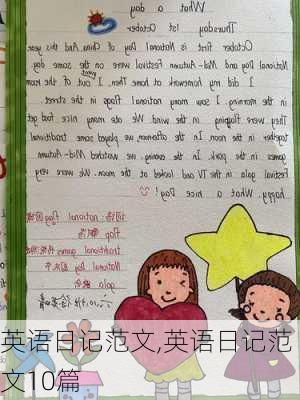 What a day
Thursday 1st October
October first is National Day of China And this year
National Day and Mid-Autumn Festival were on the some day
I did my homework at home. Then, I out of the room
in the morning. I saw many national flags in the street
They were flapping in the wind. We ate many nice food get
together in the noon. In the afternoon, we played some traditional
games in the park. In the evening, we watched Mid-Autumn
Festival gala in the TV and looked at the moon. We were very
happy. What a nice Day!
national flag
flap
traditional games
National Day
gala
英语日记范文,英语日记范
文10篇